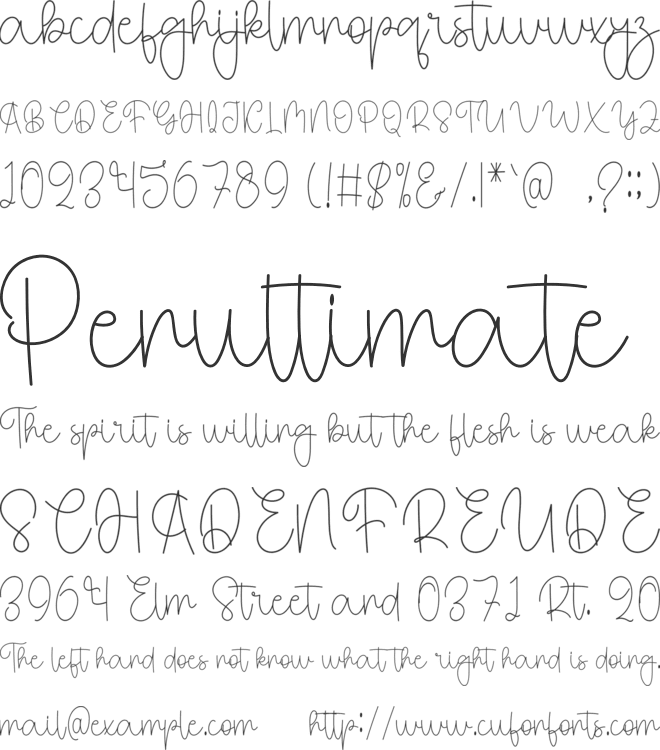 abcdefghijklmnopqrstuvwxyz
ABCDEFGHIJKLMNOPQRSTUVWXYZ
1023456789 (!#$%&/.|*`@ ,?:;)
Penultimate
The spirit is willing but the flesh is weak
SCHADENFREUDE
3964 Elm Street and 0371 Rt. 20
The left hand does not know what the right hand is doing.
mail@example.com http://www.cufonfonts.com